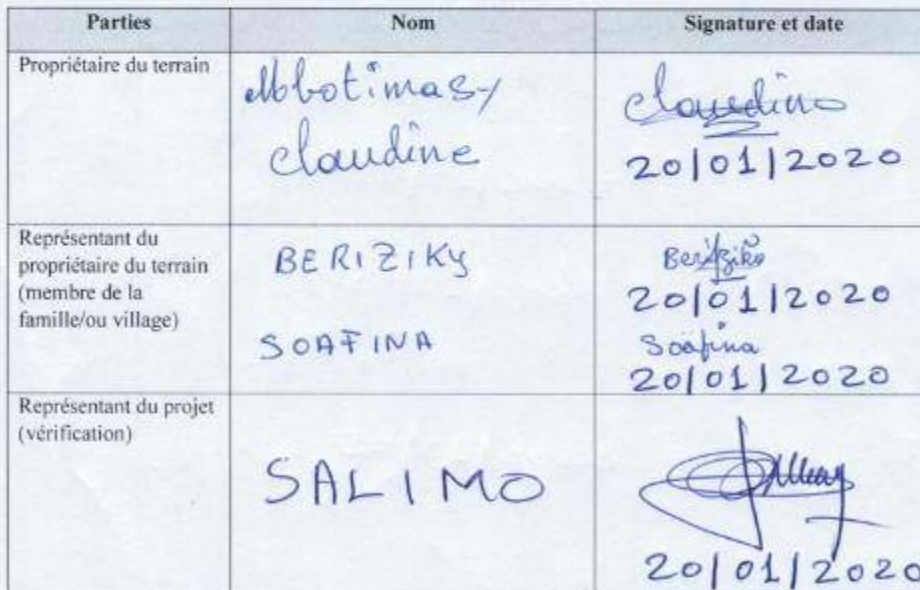 Parties Nom Signature et date
Propriétaire du terrain
Mbotimasy
Claudine
Claudine
20/01/2020
Représentant du
propriétaire du terrain
(membre de la
famille/ou village)
BERIZIKY
SOAFINA
Beriziky
20/01/2020
Soafina
20/01/2020
Représentant du projet
(vérification)
SALIMO
20/01/2020